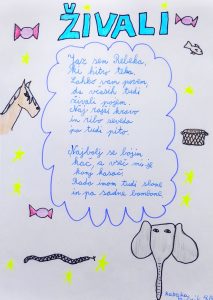 ŽIVALI
Jaz sem Rebeka,
ki hitro teka.
Lahko vam povem
da včasih tudi
živali pojem.
Naj rajši kravo
in ribo seveda
pa tudi pito.
Najbolj se bojim
kač a všeč mi je
konj kasač.
Rada imam tudi slone
in pa sadne bombone.